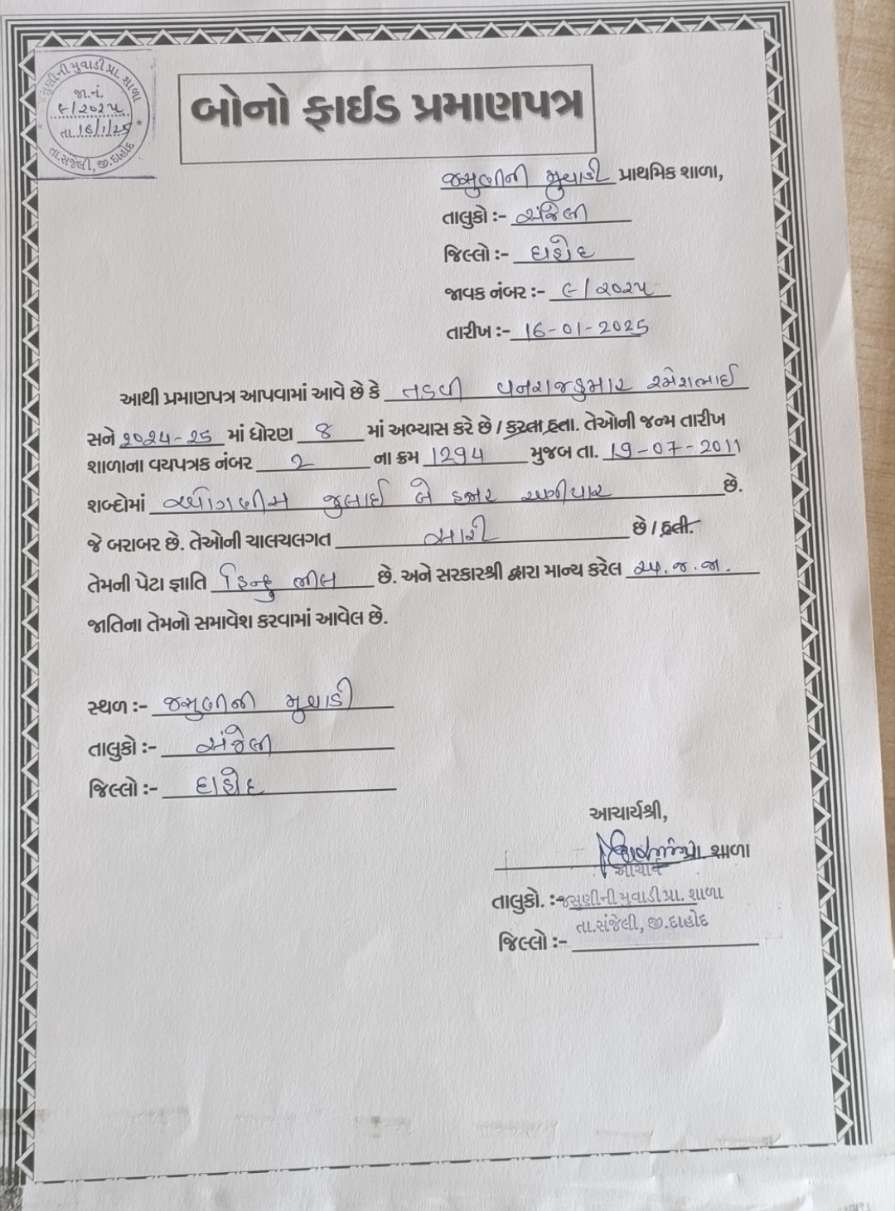 જા.નં.
૯/૨૦૨૫
તા.16/1/25
તા.સંજેલી, જી.દાહોદ
બોનો ફાઈડ પ્રમાણપત્ર
જસુણીની મુવાડી પ્રાથમિક શાળા,
તાલુકો :- સંજેલી
જિલ્લો :- દાહોદ
જાવક નંબર :- ૯/૨૦૨૫
તારીખ :- 16-01-2025
આથી પ્રમાણપત્ર આપવામાં આવે છે કે તડવી વનરાજકુમાર રમેશભાઈ
સને ૨૦૨૪-૨૫ માં ધોરણ 8 માં અભ્યાસ કરે છે / કરતા હતા. તેઓની જન્મ તારીખ
શાળાના વયપત્રક નંબર 2 ના ક્રમ 1294 મુજબ તા. 19-07-2011
શબ્દોમાં ઓગણીસ જુલાઈ બે હજાર અગીયાર છે.
જે બરાબર છે. તેઓની ચાલચલગત સારી છે / હતી.
તેમની પેટા જ્ઞાતિ હિન્દુ ભીલ છે. અને સરકારશ્રી દ્વારા માન્ય કરેલ અ.જ.જા.
જાતિના તેમનો સમાવેશ કરવામાં આવેલ છે.
સ્થળ :- જસુણીની મુવાડી
તાલુકો :- સંજેલી
જિલ્લો :- દાહોદ
આચાર્યશ્રી,
શાળા
આચાર્ય
તાલુકો. :- જસુણીની મુવાડી પ્રા. શાળા
તા.સંજેલી, જી.દાહોદ
જિલ્લો :-